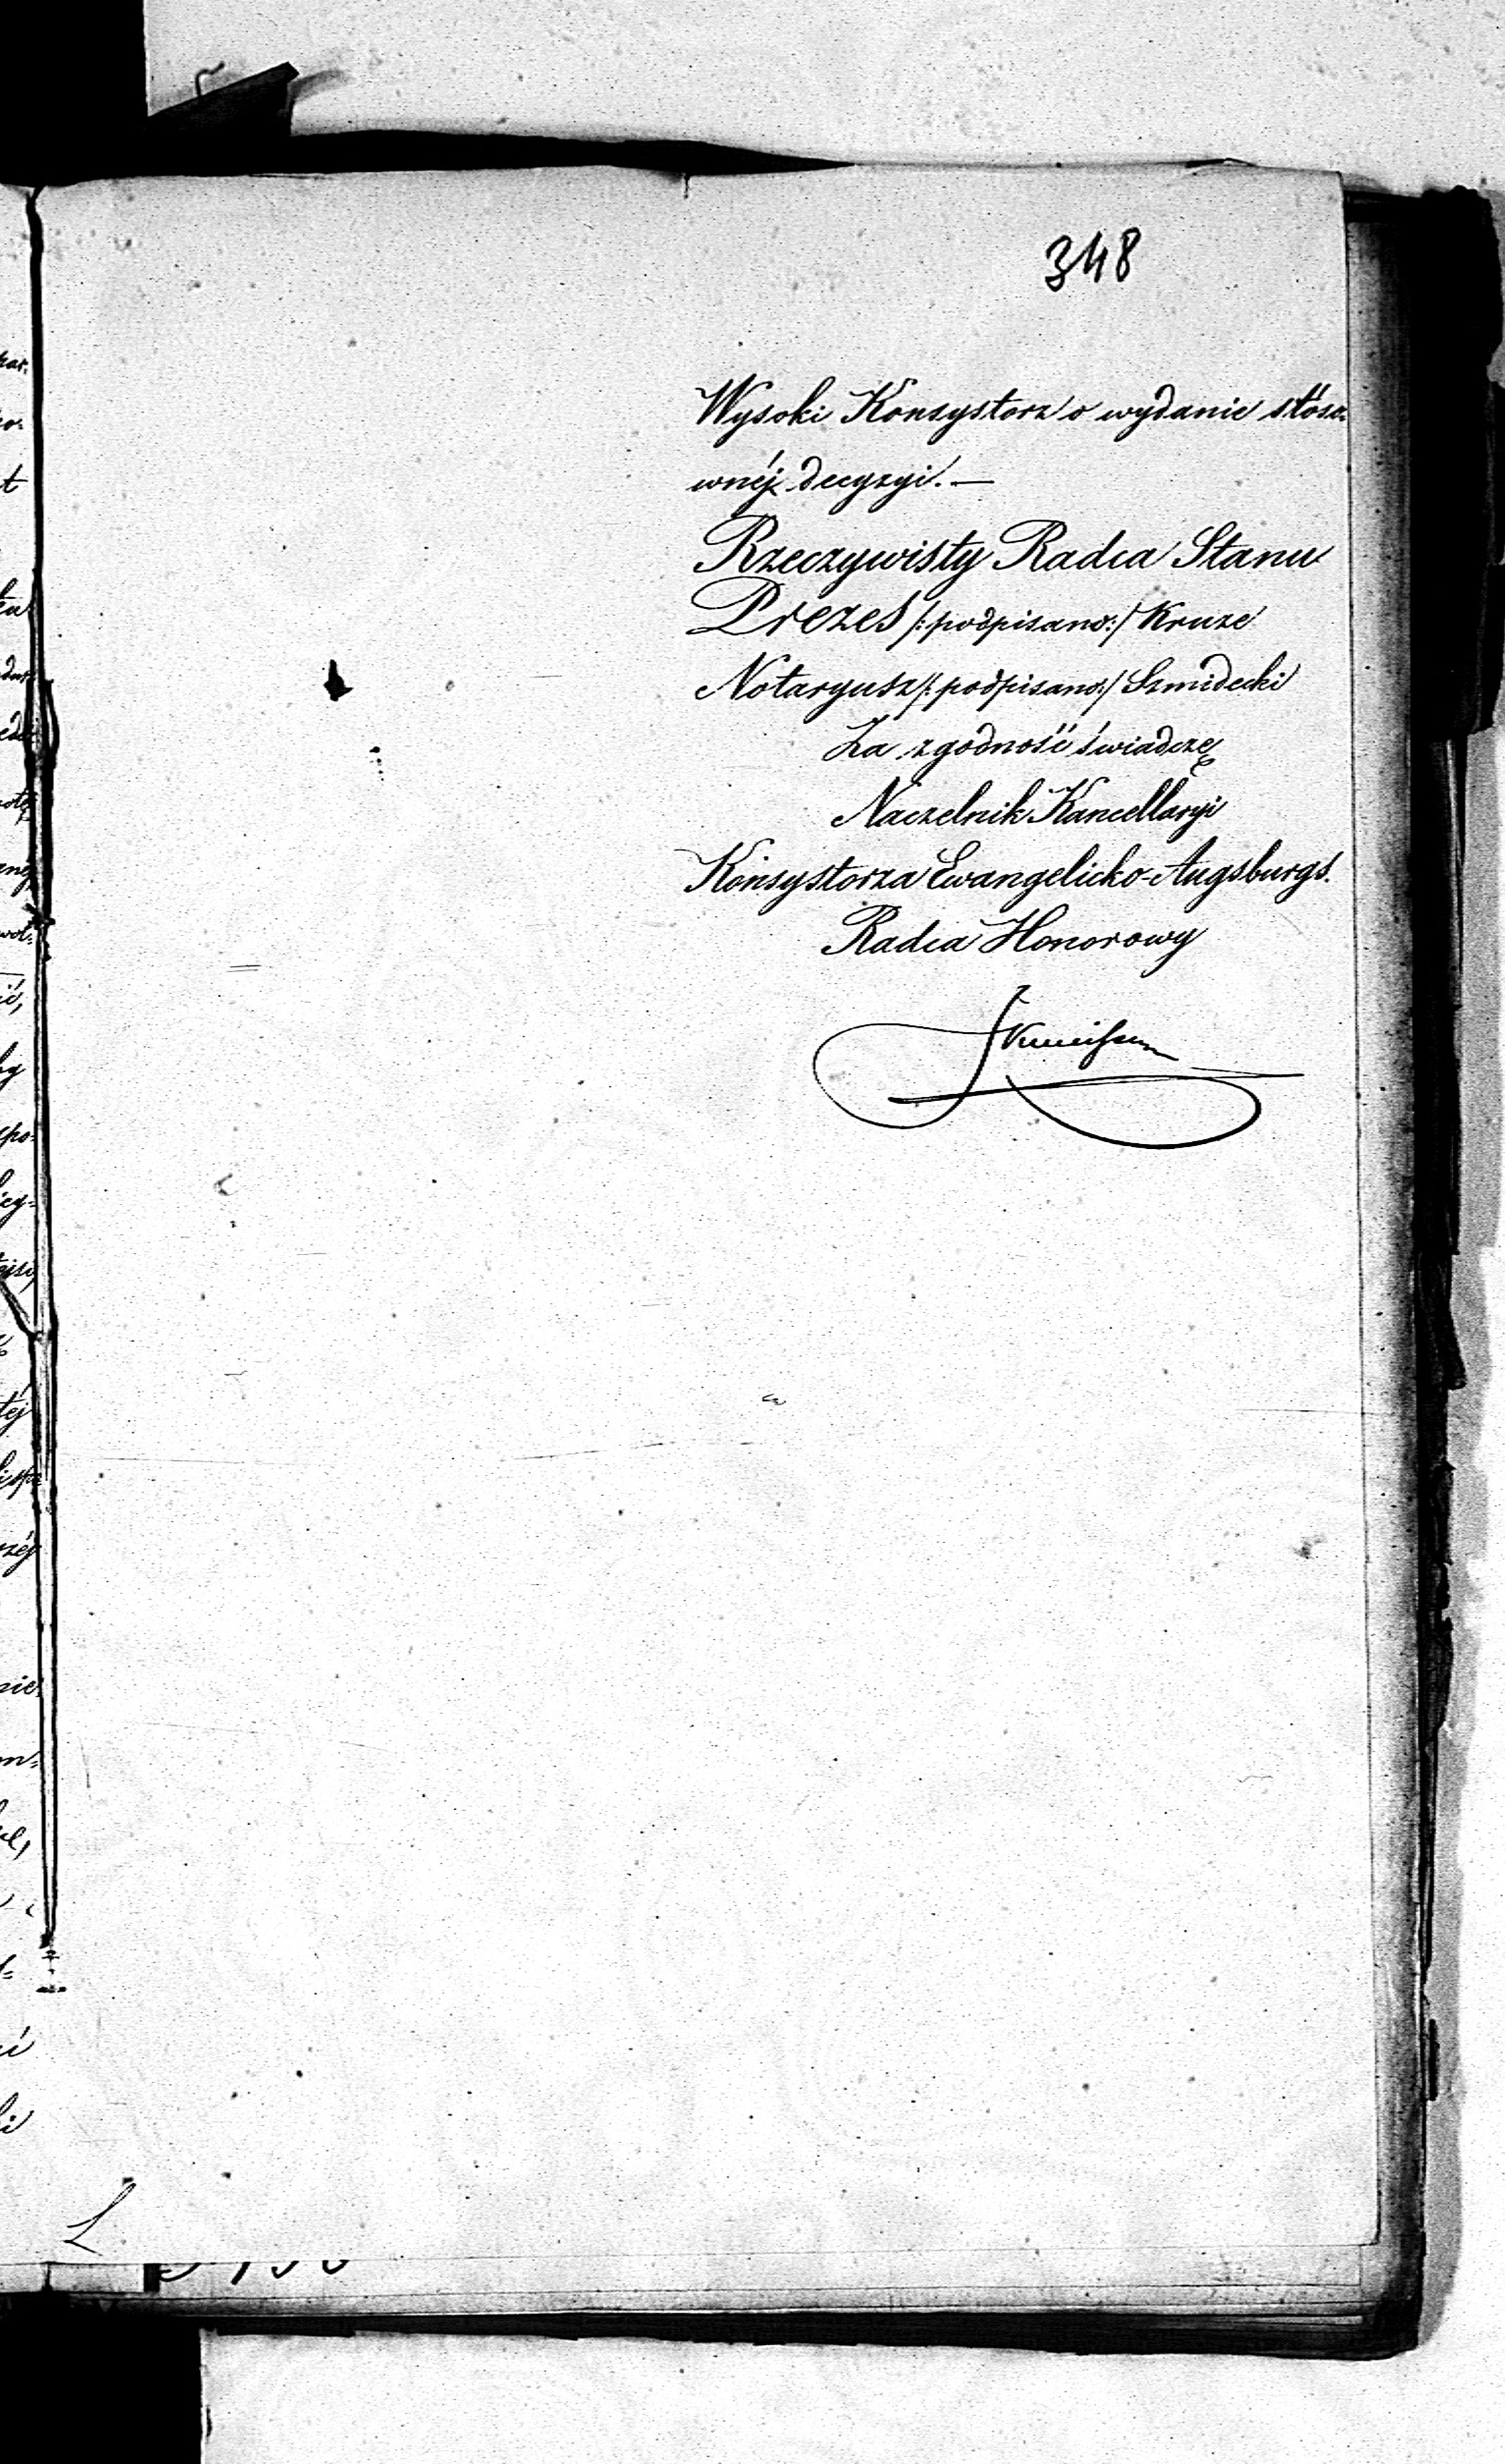 348
Wysoki Konsystorz o wydanie stóso-
wnéj decyzyi. —
Rzeczywisty Radca Stanu
Prezes /:podpisano:/ Kruze
Notaryusz /:podpisano:/ Szmidecki
Za zgodność świadczę
Naczelnik Kancellaryi
Konsystorza Ewangelicko-Augsburgs.
Radca Honorowy